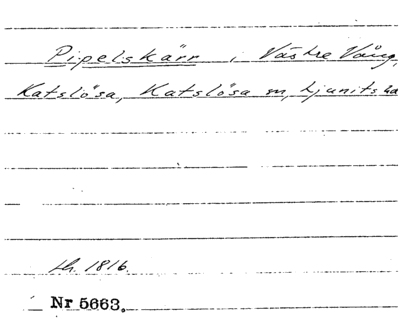 Pipelskärr i Västre Vång,
Katslösa, Katslösa sn, Ljunits hd
Lh. 1816.
Nr 5663.